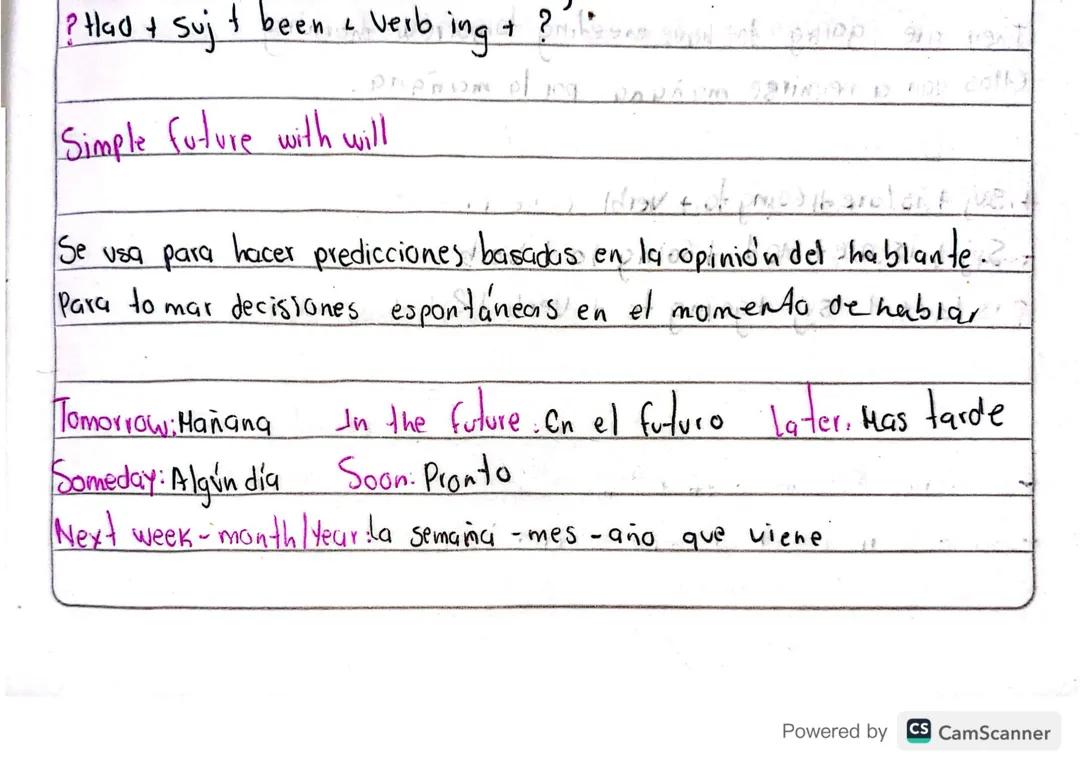 ? Had + Suj + been + Verb ing + ?
Simple future with will
Se usa para hacer predicciones basadas en la opinión del hablante.
Para tomar decisiones espontáneas en el momento de hablar
Tomorrow: Mañana In the future: En el futuro Later: Mas tarde
Someday: Algún día Soon: Pronto
Next week - month / Year: la semana - mes - año que viene
Powered by CS CamScanner